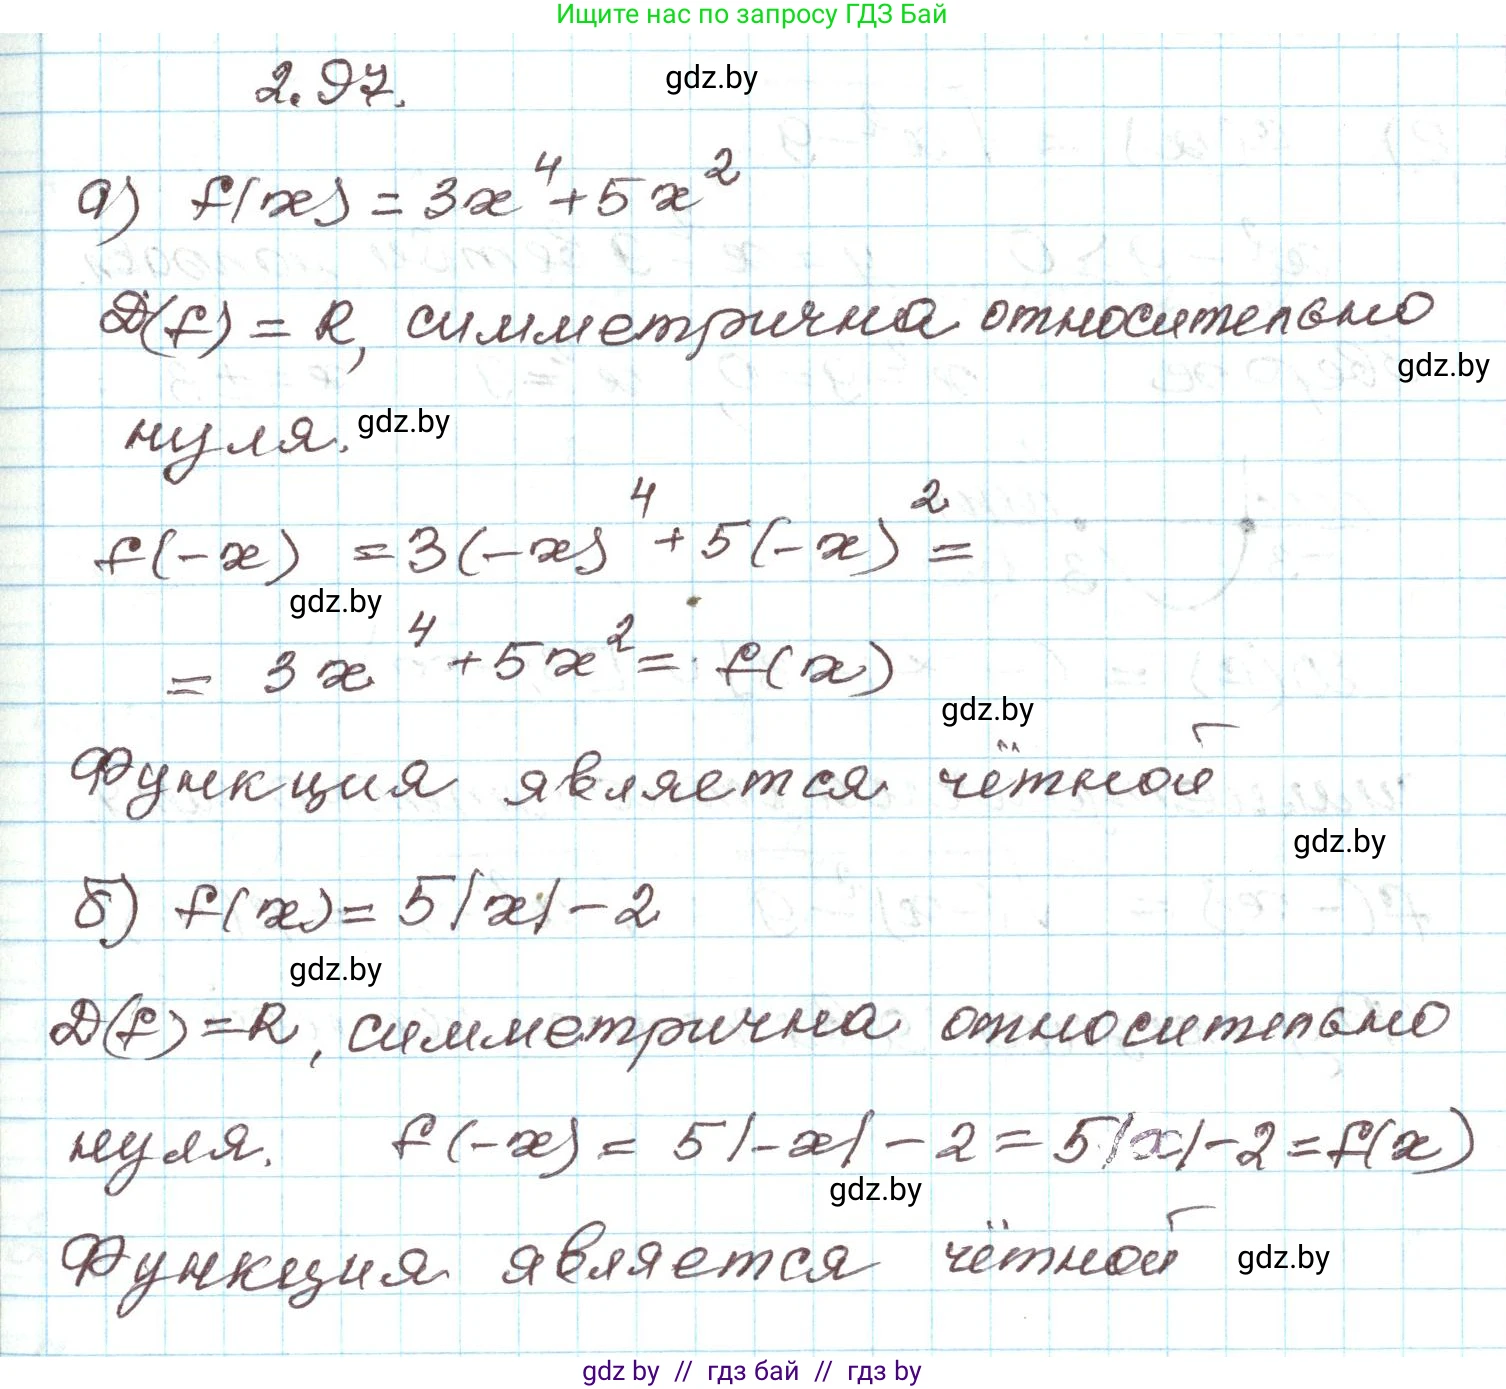 Ищите нас по запросу ГДЗ Бай
2.97. gdz.by
а) f(x) = 3x⁴ + 5x²
D(f) = R, симметрична относительно
gdz.by
нуля. gdz.by
f(-x) = 3(-x)⁴ + 5(-x)² =
gdz.by
= 3x⁴ + 5x² = f(x)
gdz.by
Функция является чётной
gdz.by
б) f(x) = 5|x| - 2
gdz.by
D(f) = R, симметрична относительно
нуля. f(-x) = 5|-x| - 2 = 5|x| - 2 = f(x)
gdz.by
Функция является чётной gdz.by
gdz by // гдз бай // гдз by